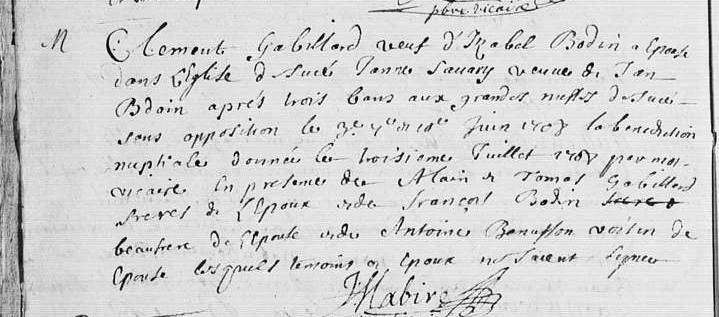 pbre vicaire
M Clemont Gabillard veuf d'Izabel Bodin a Epousé
dans L'Eglise d Sucé Janne Savary veuve de Jan
Bdoin aprés trois bans aux grandes messes de Sucé
sans opposition le 3e juin 1708 la benediction
nuptiale donnée le troisieme Juillet 1708 par moy
vicaire En presence de Alain et Tomas Gabillard
freres de L'Epoux et de François Bodin
beaufrere de L'Epouse et de Antoine voisin de
Epouse lesquels temoins et epoux ne savent signer
Mabire